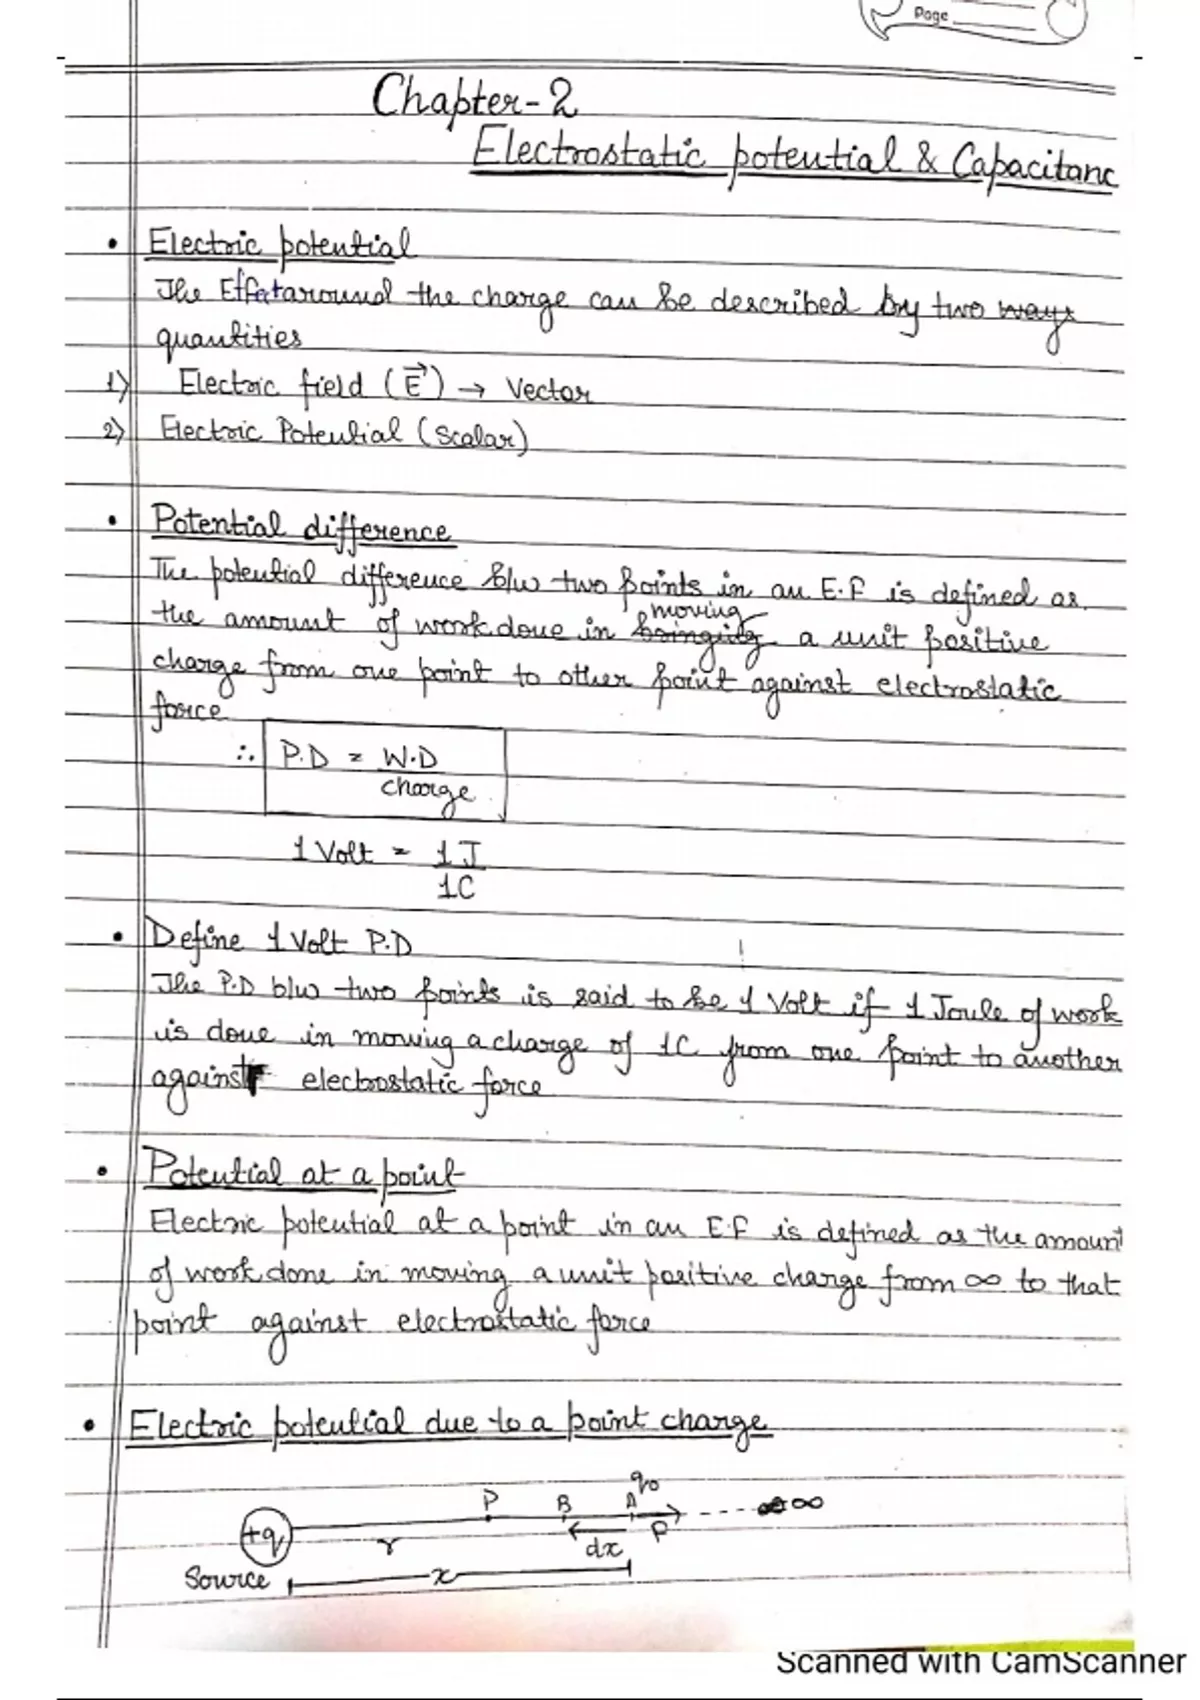 Page
Chapter-2
Electrostatic potential & Capacitanc
• Electric potential
The Effect around the charge can be described by two ways
quantities
1) Electric field (E⃗) → Vector
2) Electric Potential (Scalar)
• Potential difference
The potential difference b/w two points in an E.F is defined as
moving
the amount of work done in bringing a unit positive
charge from one point to other point against electrostatic
force
∴ P.D = W.D
charge
1 Volt = 1 J
1C
• Define 1 Volt P.D
The P.D b/w two points is said to be 1 Volt if 1 Joule of work
is done in moving a charge of 1C from one point to another
against electrostatic force
• Potential at a point
Electric potential at a point in an E.F is defined as the amount
of work done in moving a unit positive charge from ∞ to that
point against electrostatic force
• Electric potential due to a point charge
q₀
P B A ∞
+q
r dx F
Source x
Scanned with CamScanner